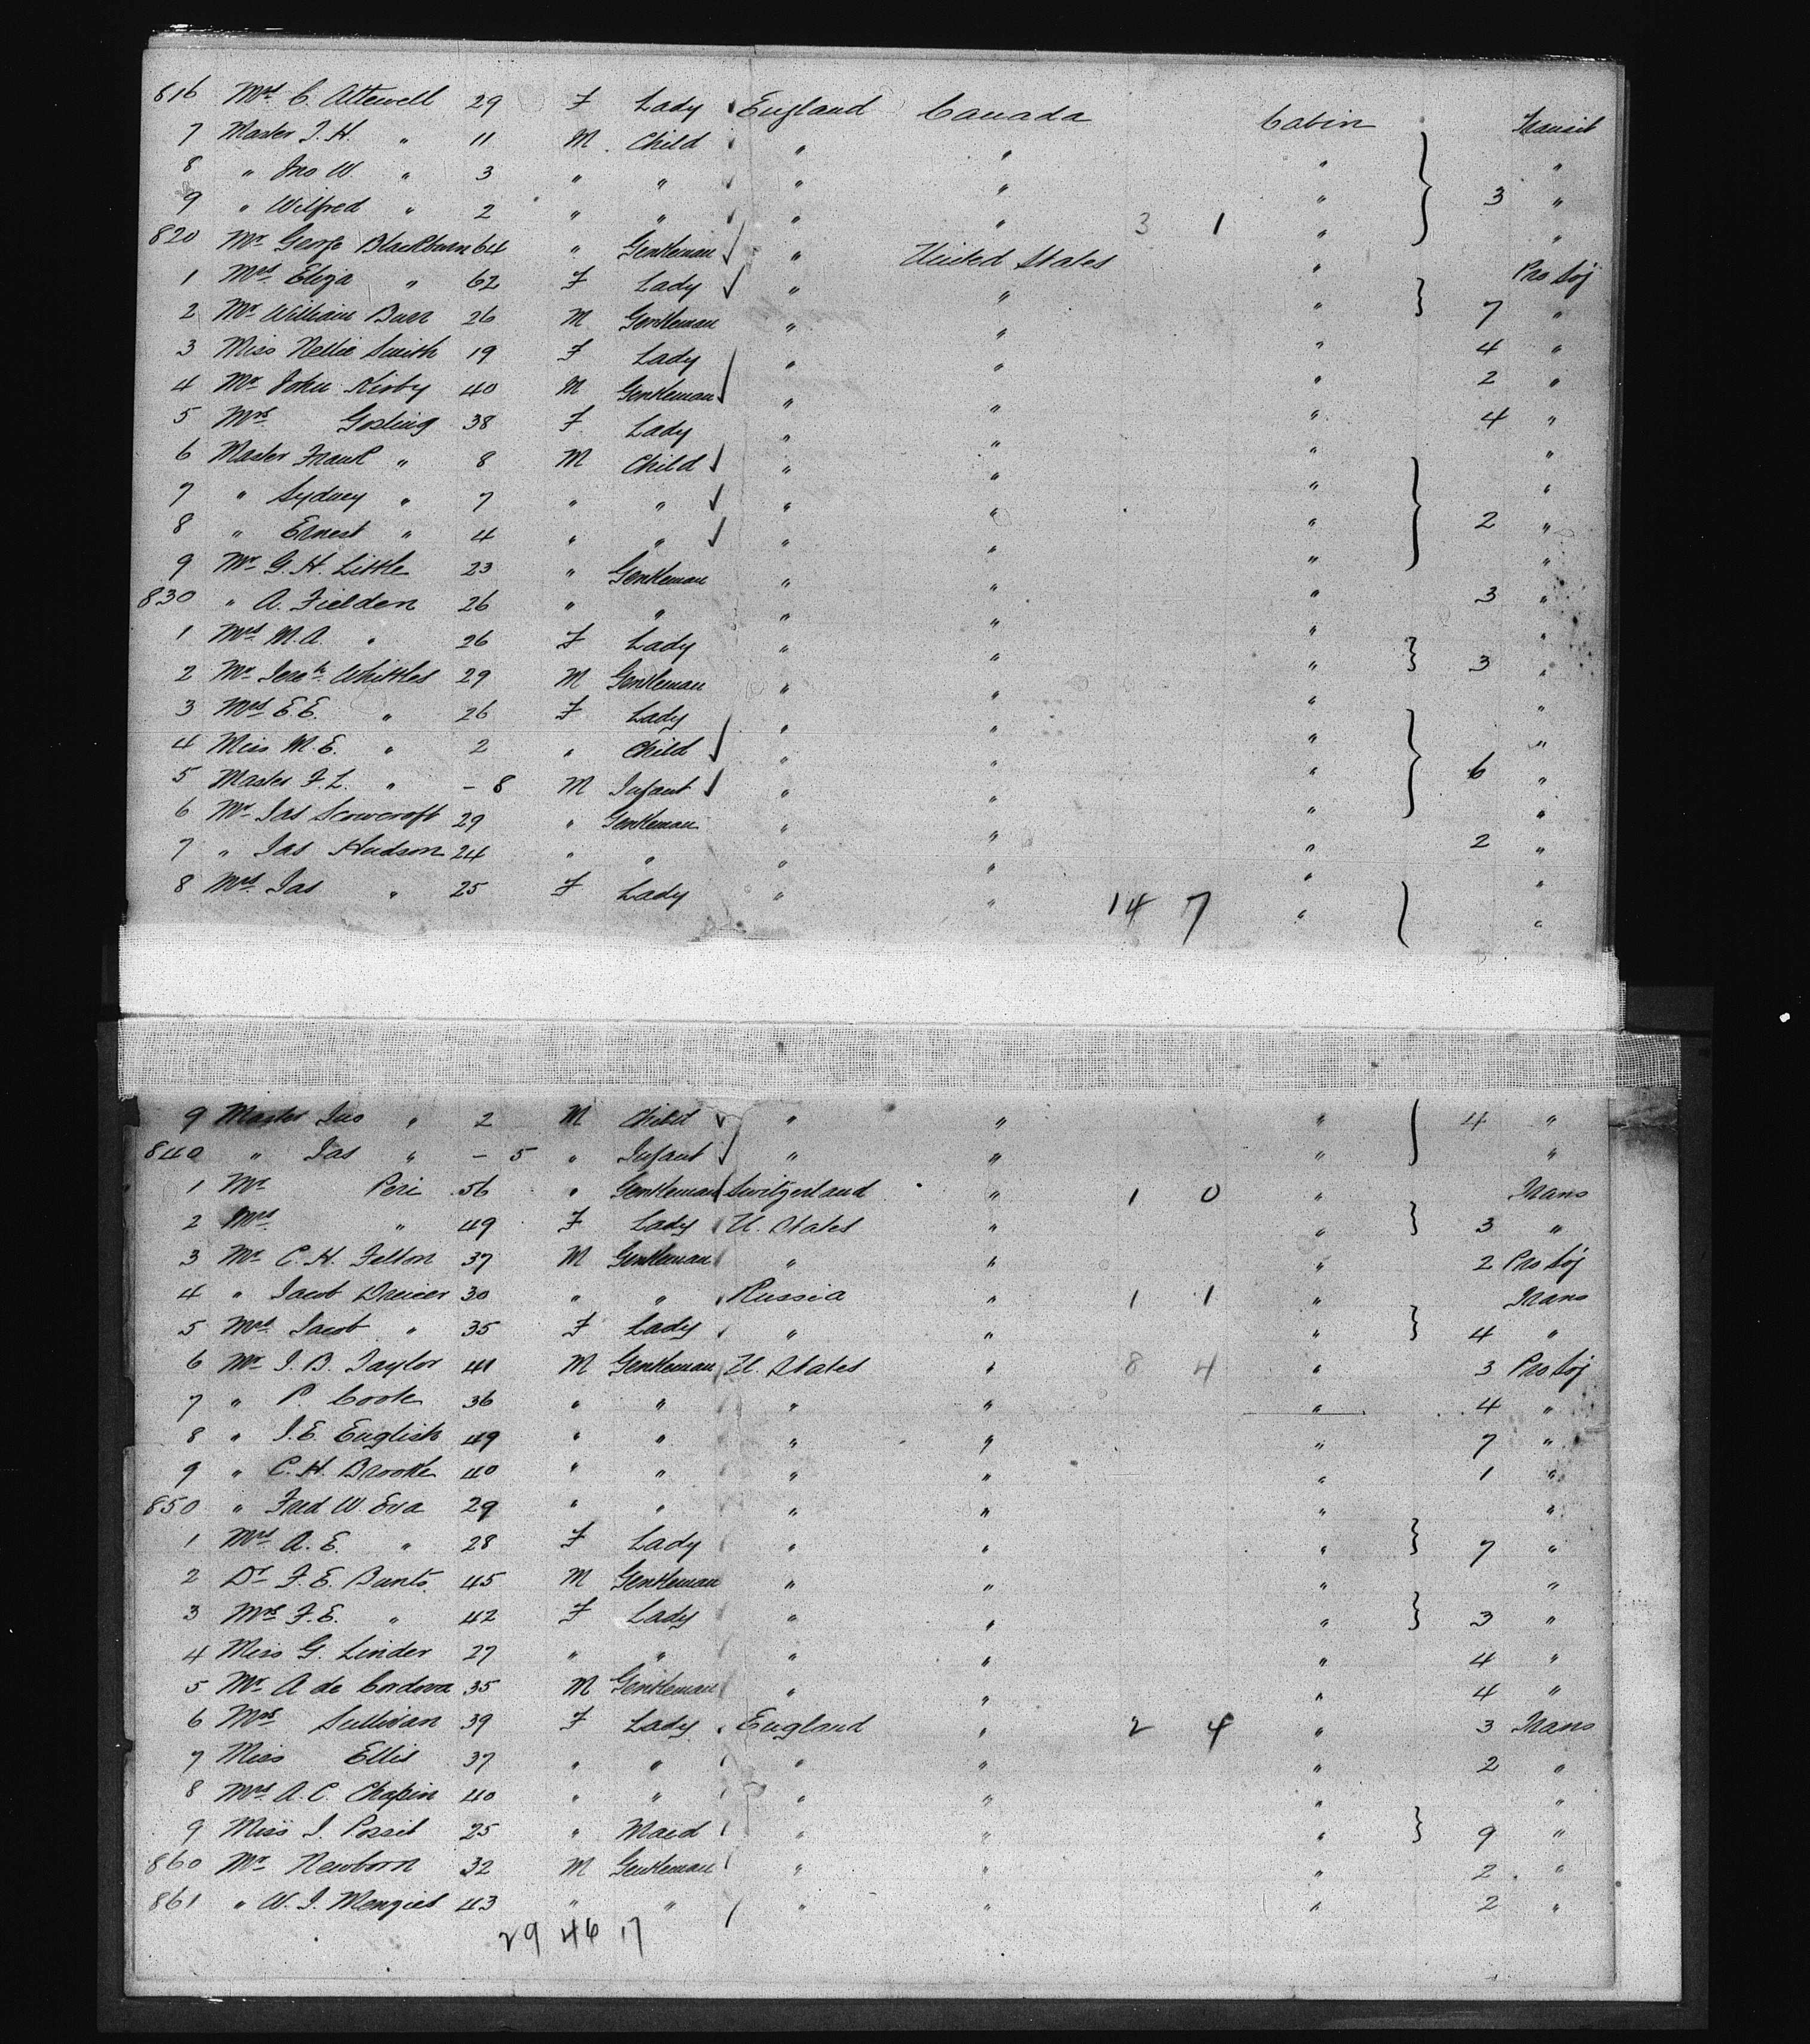 816 Mrs C. Attewell 29 F Lady England Canada Cabin Transit
7 Master J. H. " 11 M Child " " " "
8 " Jno W. " 3 " " " " " 3 "
9 " Wilfred " 2 " " " " 3 1 " "
820 Mr George Blackburn 64 " Gentleman " United States " Pro Soj
1 Mrs Eliza " 62 F Lady " " " 7 "
2 Mr William Barr 26 M Gentleman " " " 4 "
3 Miss Nellie Smith 19 F Lady " " " 2 "
4 Mr John Kirby 40 M Gentleman " " " 4 "
5 Mrs Gosling 38 F Lady " " " "
6 Master Frank " 8 M Child " " " "
7 " Sydney " 7 " " " " " 2 "
8 " Ernest " 4 " " " " " "
9 Mr G. H. Little 23 " Gentleman " " " 3 "
830 " A. Fielden 26 " " " " " "
1 Mrs M. A. " 26 F Lady " " " 3 "
2 Mr Whittles 29 M Gentleman " " " "
3 Mrs E. E. " 26 F Lady " " " "
4 Miss M. E. " 2 " Child " " " 6 "
5 Master F. L. " - 8 M Infant " " " "
6 Mr Jas Scowcroft 29 " Gentleman " " " 2 "
7 " Jas Hudson 24 " " " " " "
8 Mrs Jas " 25 F Lady " " 14 7 " "
9 Master Jno " 2 M Child " " " 4 "
840 " Jas " - 5 " Infant " " " "
1 Mr Peri 56 " Gentleman Switzerland " 1 0 " Trans
2 Mrs " 49 F Lady U. States " " 3 "
3 Mr C. H. Felton 37 M Gentleman " " " 2 Pro Soj
4 " Jacob Dreicer 30 " " Russia " 1 1 " Trans
5 Mrs Jacob " 35 F Lady " " " 4 "
6 Mr J. B. Taylor 41 M Gentleman U. States " 8 4 " 3 Pro Soj
7 " P. Cook 36 " " " " " 4 "
8 " J. E. English 49 " " " " " 7 "
9 " C. H. Brooke 40 " " " " " 1 "
850 " Fred W. Eva 29 " " " " " "
1 Mrs A. E. " 28 F Lady " " " 7 "
2 Dr F. E. Bunts 45 M Gentleman " " " "
3 Mrs F. E. " 42 F Lady " " " 3 "
4 Miss G. Linder 27 " " " " " 4 "
5 Mr A de Cordova 35 M Gentleman " " " 4 "
6 Mrs Sullivan 39 F Lady England " 2 4 " 3 Trans
7 Miss Ellis 37 " " " " " 2 "
8 Mrs A. C. Chapin 40 " " " " " "
9 Miss J. 25 " Maid " " " 9 "
860 Mr Newborn 32 M Gentleman " " " 2 "
861 " W. J. Menzies 43 " " " " " 2 "
29 46 17